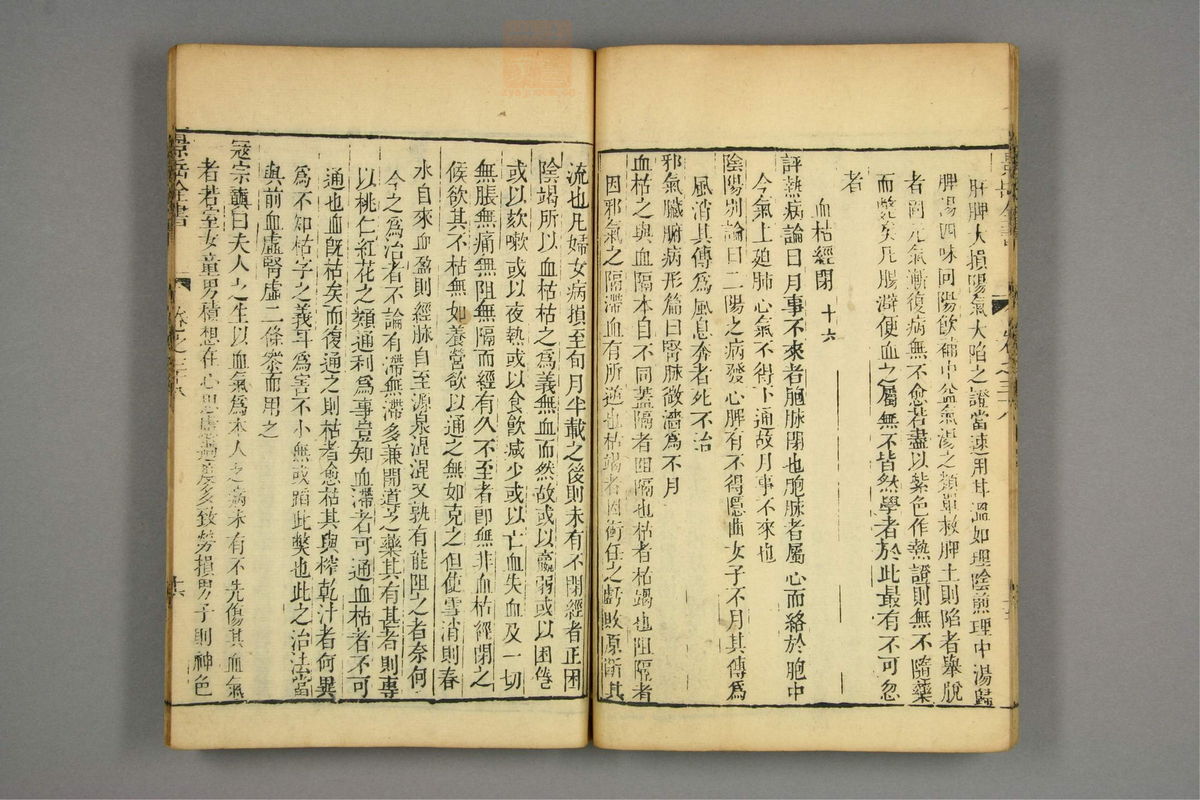 肝脾大損陽氣大陷之證當速用甘溫如理陰煎理中湯歸
脾湯四味回陽飲補中益氣湯之類單救脾土則陷者舉脫
者固元氣漸復病無不愈若盡以紫色作熱證則無不隨藥
而斃矣凡腸澼便血之屬無不皆然學者於此最有不可忽
者
血枯經閉 十六
評熱病論曰月事不來者胞脉閉也胞脉者屬心而絡於胞中
今氣上廹肺心氣不得下通故月事不來也
陰陽别論曰二陽之病發心脾有不得隱曲女子不月其傳爲
風消其傳爲風息奔者死不治
邪氣臟腑病形篇曰腎脉微濇爲不月
血枯之與血隔本自不同葢隔者阻隔也枯者枯竭也阻隔者
因邪氣之隔滯血有所逆也枯竭者因衝任之虧敗原斷其
流也凡婦女病損至旬月半載之後則未有不閉經者正因
陰竭所以血枯枯之爲義無血而然故或以羸弱或以困倦
或以欬嗽或以夜熱或以食飲减少或以亡血失血及一切
無脹無痛無阻無隔而經有久不至者即無非血枯經閉之
候欲其不枯無如養營欲以通之無如充之但使雪消則春
水自來血盈則經脉自至源泉混混又孰有能阻之者奈何
今之爲治者不論有滯無滯多兼開導之藥其有甚者則專
以桃仁紅花之類通利爲事豈知血滯者可通血枯者不可
通也血旣枯矣而復通之則枯者愈枯其與榨乾汁者何異
爲不知枯字之義耳爲害不小無或蹈此獘也此之治法當
與前血虛腎虛二條叅而用之
宼宗奭曰夫人之生以血氣爲本人之病未有不先傷其血氣
者若室女童男積想在心思慮過度多致勞損男子則神色
景岳全書
卷之三十八